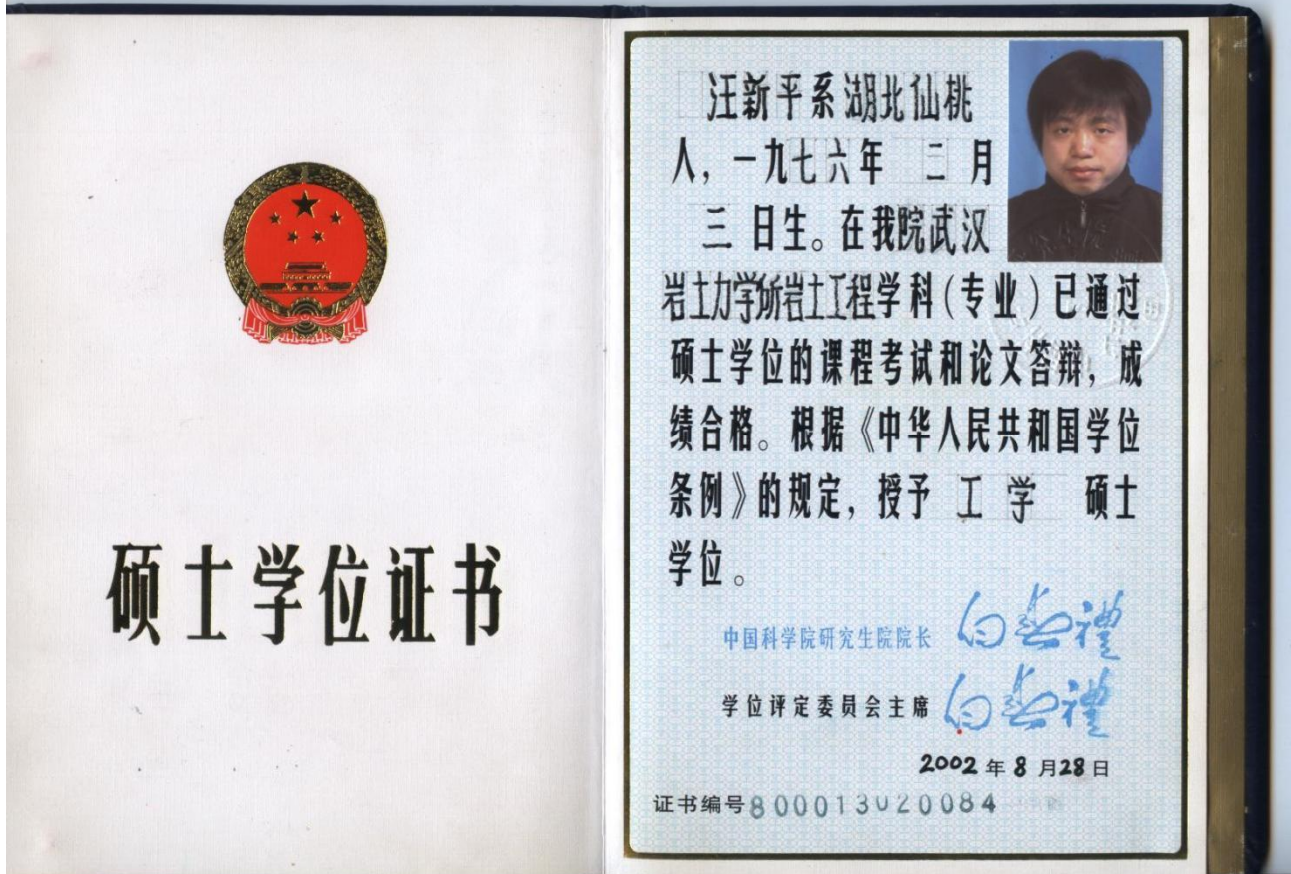 硕士学位证书
汪新平系湖北仙桃
人，一九七六年 二 月
三 日生。在我院武汉
岩土力学所岩土工程学科(专业)已通过
硕士学位的课程考试和论文答辩，成
绩合格。根据《中华人民共和国学位
条例》的规定，授予 工 学 硕士
学位。
中国科学院研究生院院长 白春禮
学位评定委员会主席 白春禮
2002年8月28日
证书编号800013020084